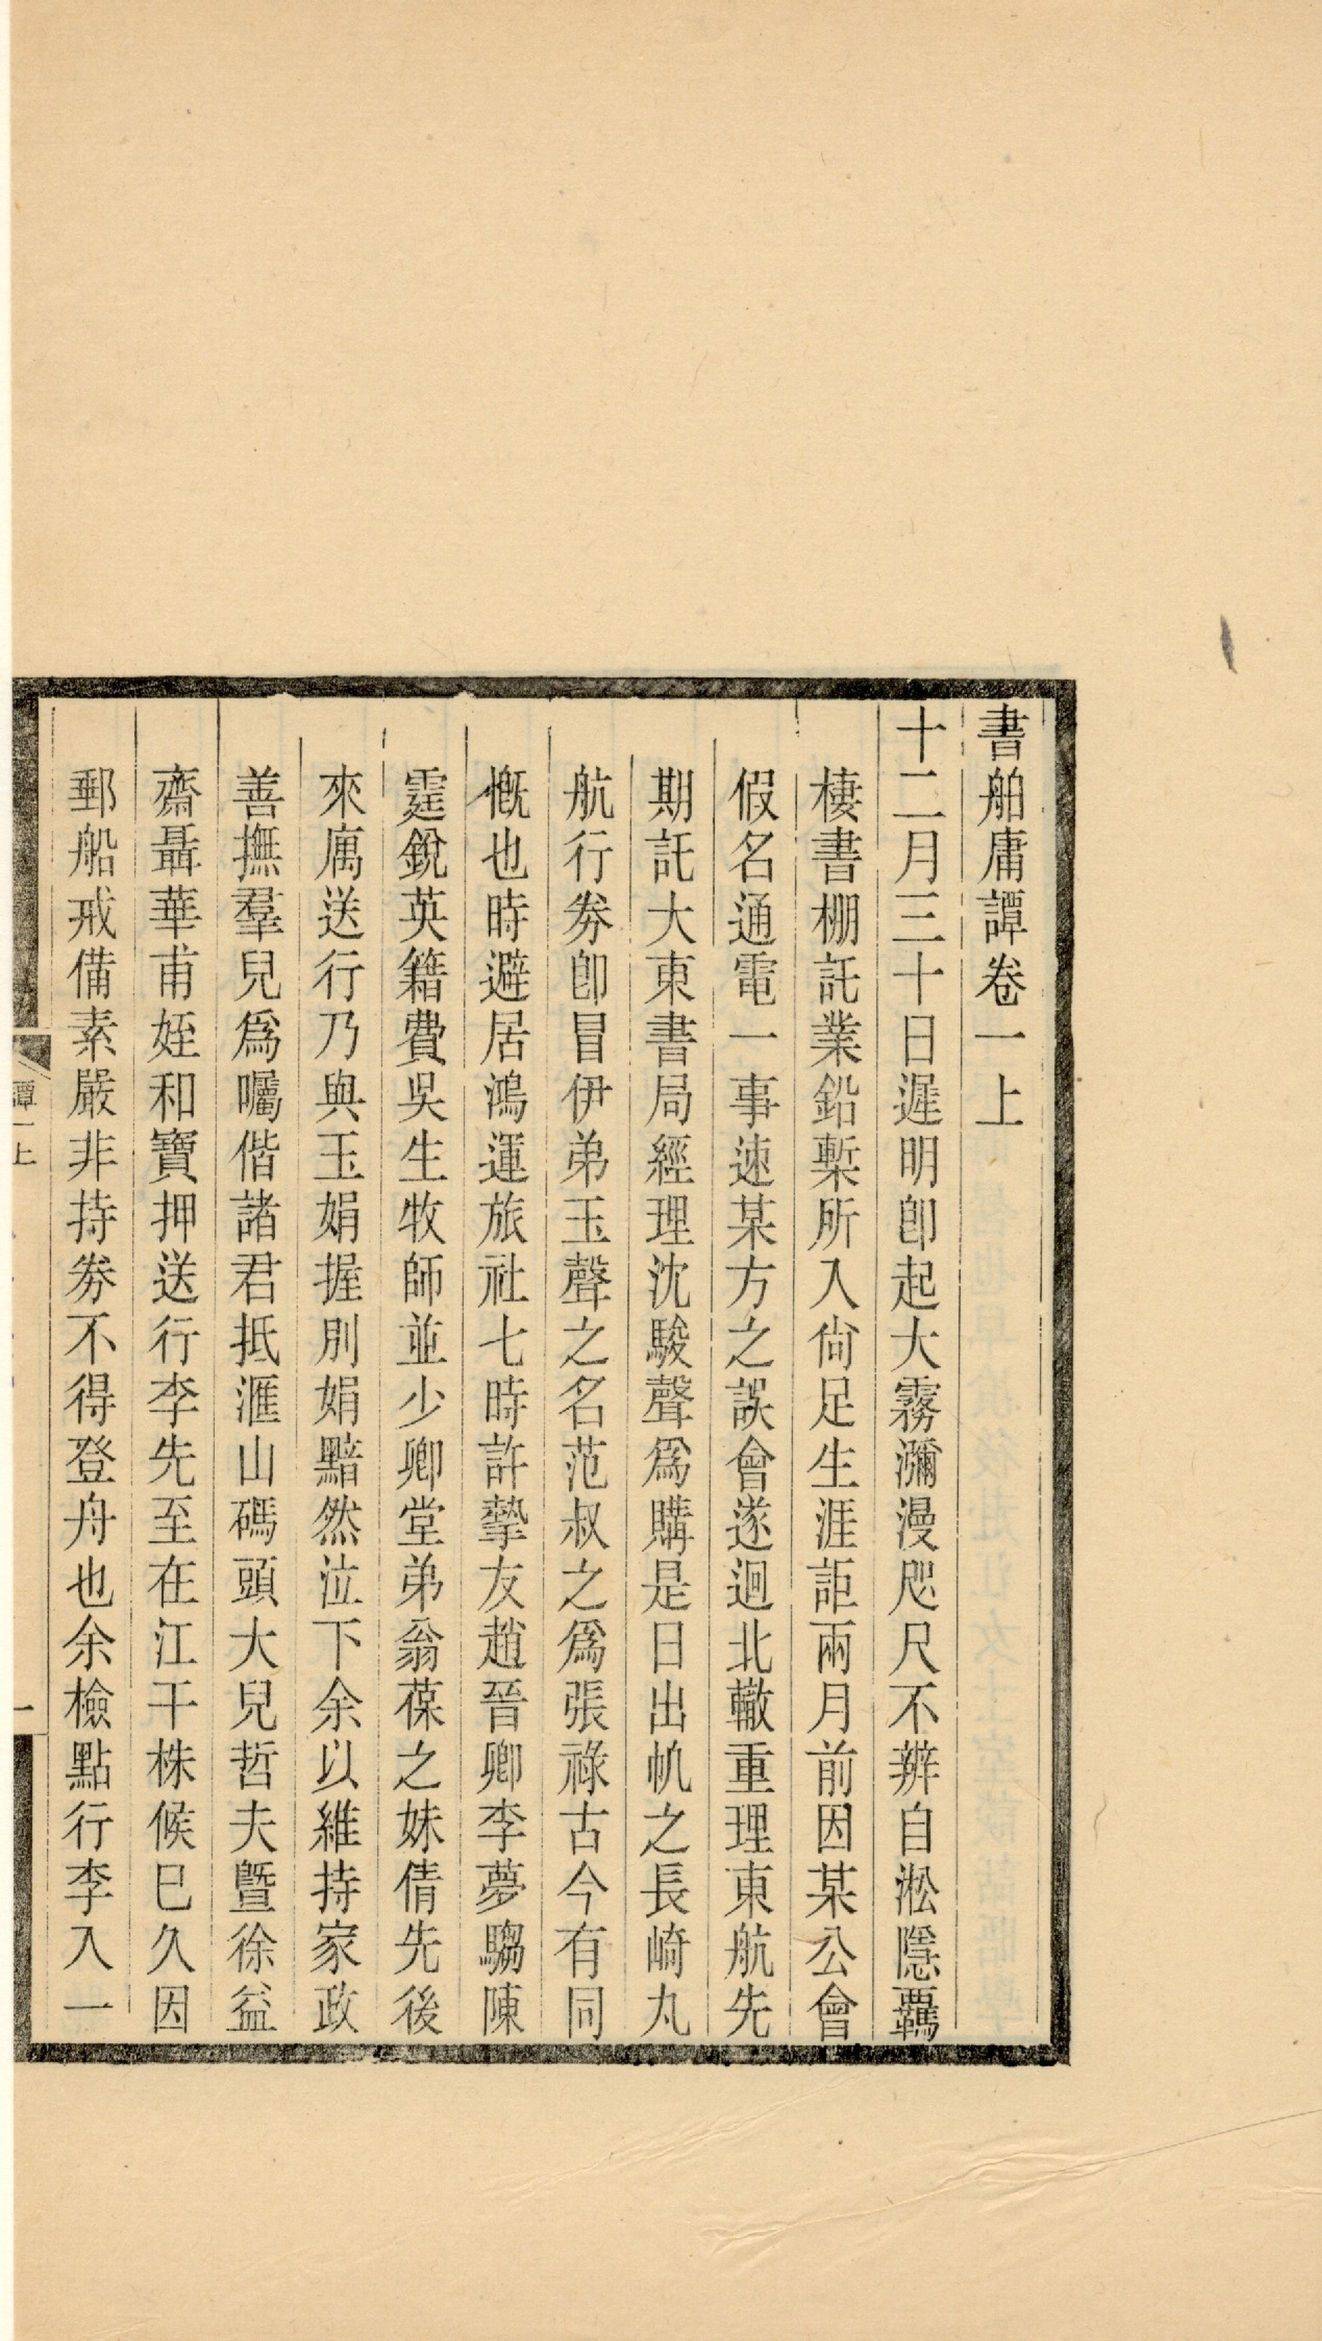 書舶庸譚卷一上
十二月三十日遲明卽起大霧瀰漫咫尺不辨自淞隱羈
棲書棚託業鉛槧所入尙足生涯詎兩月前因某公會
假名通電一事速某方之誤會遂迴北轍重理東航先
期託大東書局經理沈駿聲爲購是日出帆之長崎丸
航行劵卽冒伊弟玉聲之名范叔之爲張祿古今有同
慨也時避居鴻運旅社七時許摯友趙晉卿李夢騶陳
霆銳英籍費吳生牧師並少卿堂弟翁葆之妹倩先後
來寓送行乃與玉娟握別娟黯然泣下余以維持家政
善撫羣兒爲囑偕諸君抵滙山碼頭大兒哲夫曁徐益
齋聶華甫姪和寶押送行李先至在江干株候巳久因
郵船戒備素嚴非持劵不得登舟也余檢點行李入一
譚一上
一